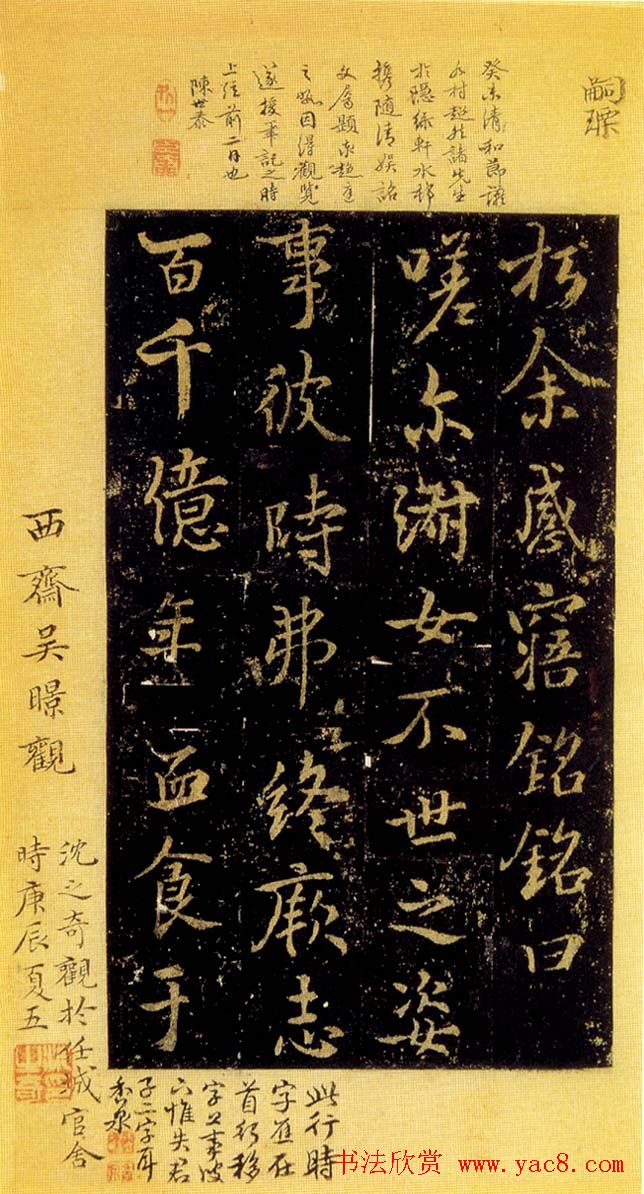 嗣璪
癸未清和節讌
水村趙諸先生
於隱綠軒水邨
携隨清娛誌
文屬題
之歌因得觀覽
遂援筆記之時
上任前二日也
陳世泰
於余感寤銘銘曰
嗟尔淑女不世之姿
事彼時弗終厥志
百千億年血食于
西齋吴暻觀
沈之奇觀於任城官舍
時庚辰夏五
此行時
字應在
首行移
字上事彼
下惟失君
子二字耳
香泉
书法欣赏 www.yac8.com